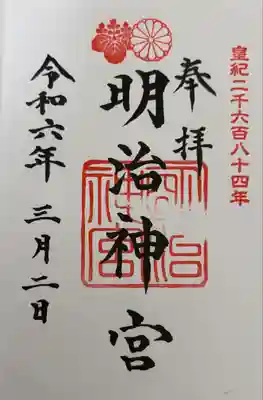 皇紀二千六百八十四年
奉拝
明治神宮
明治神宮
令和六年 三月二日